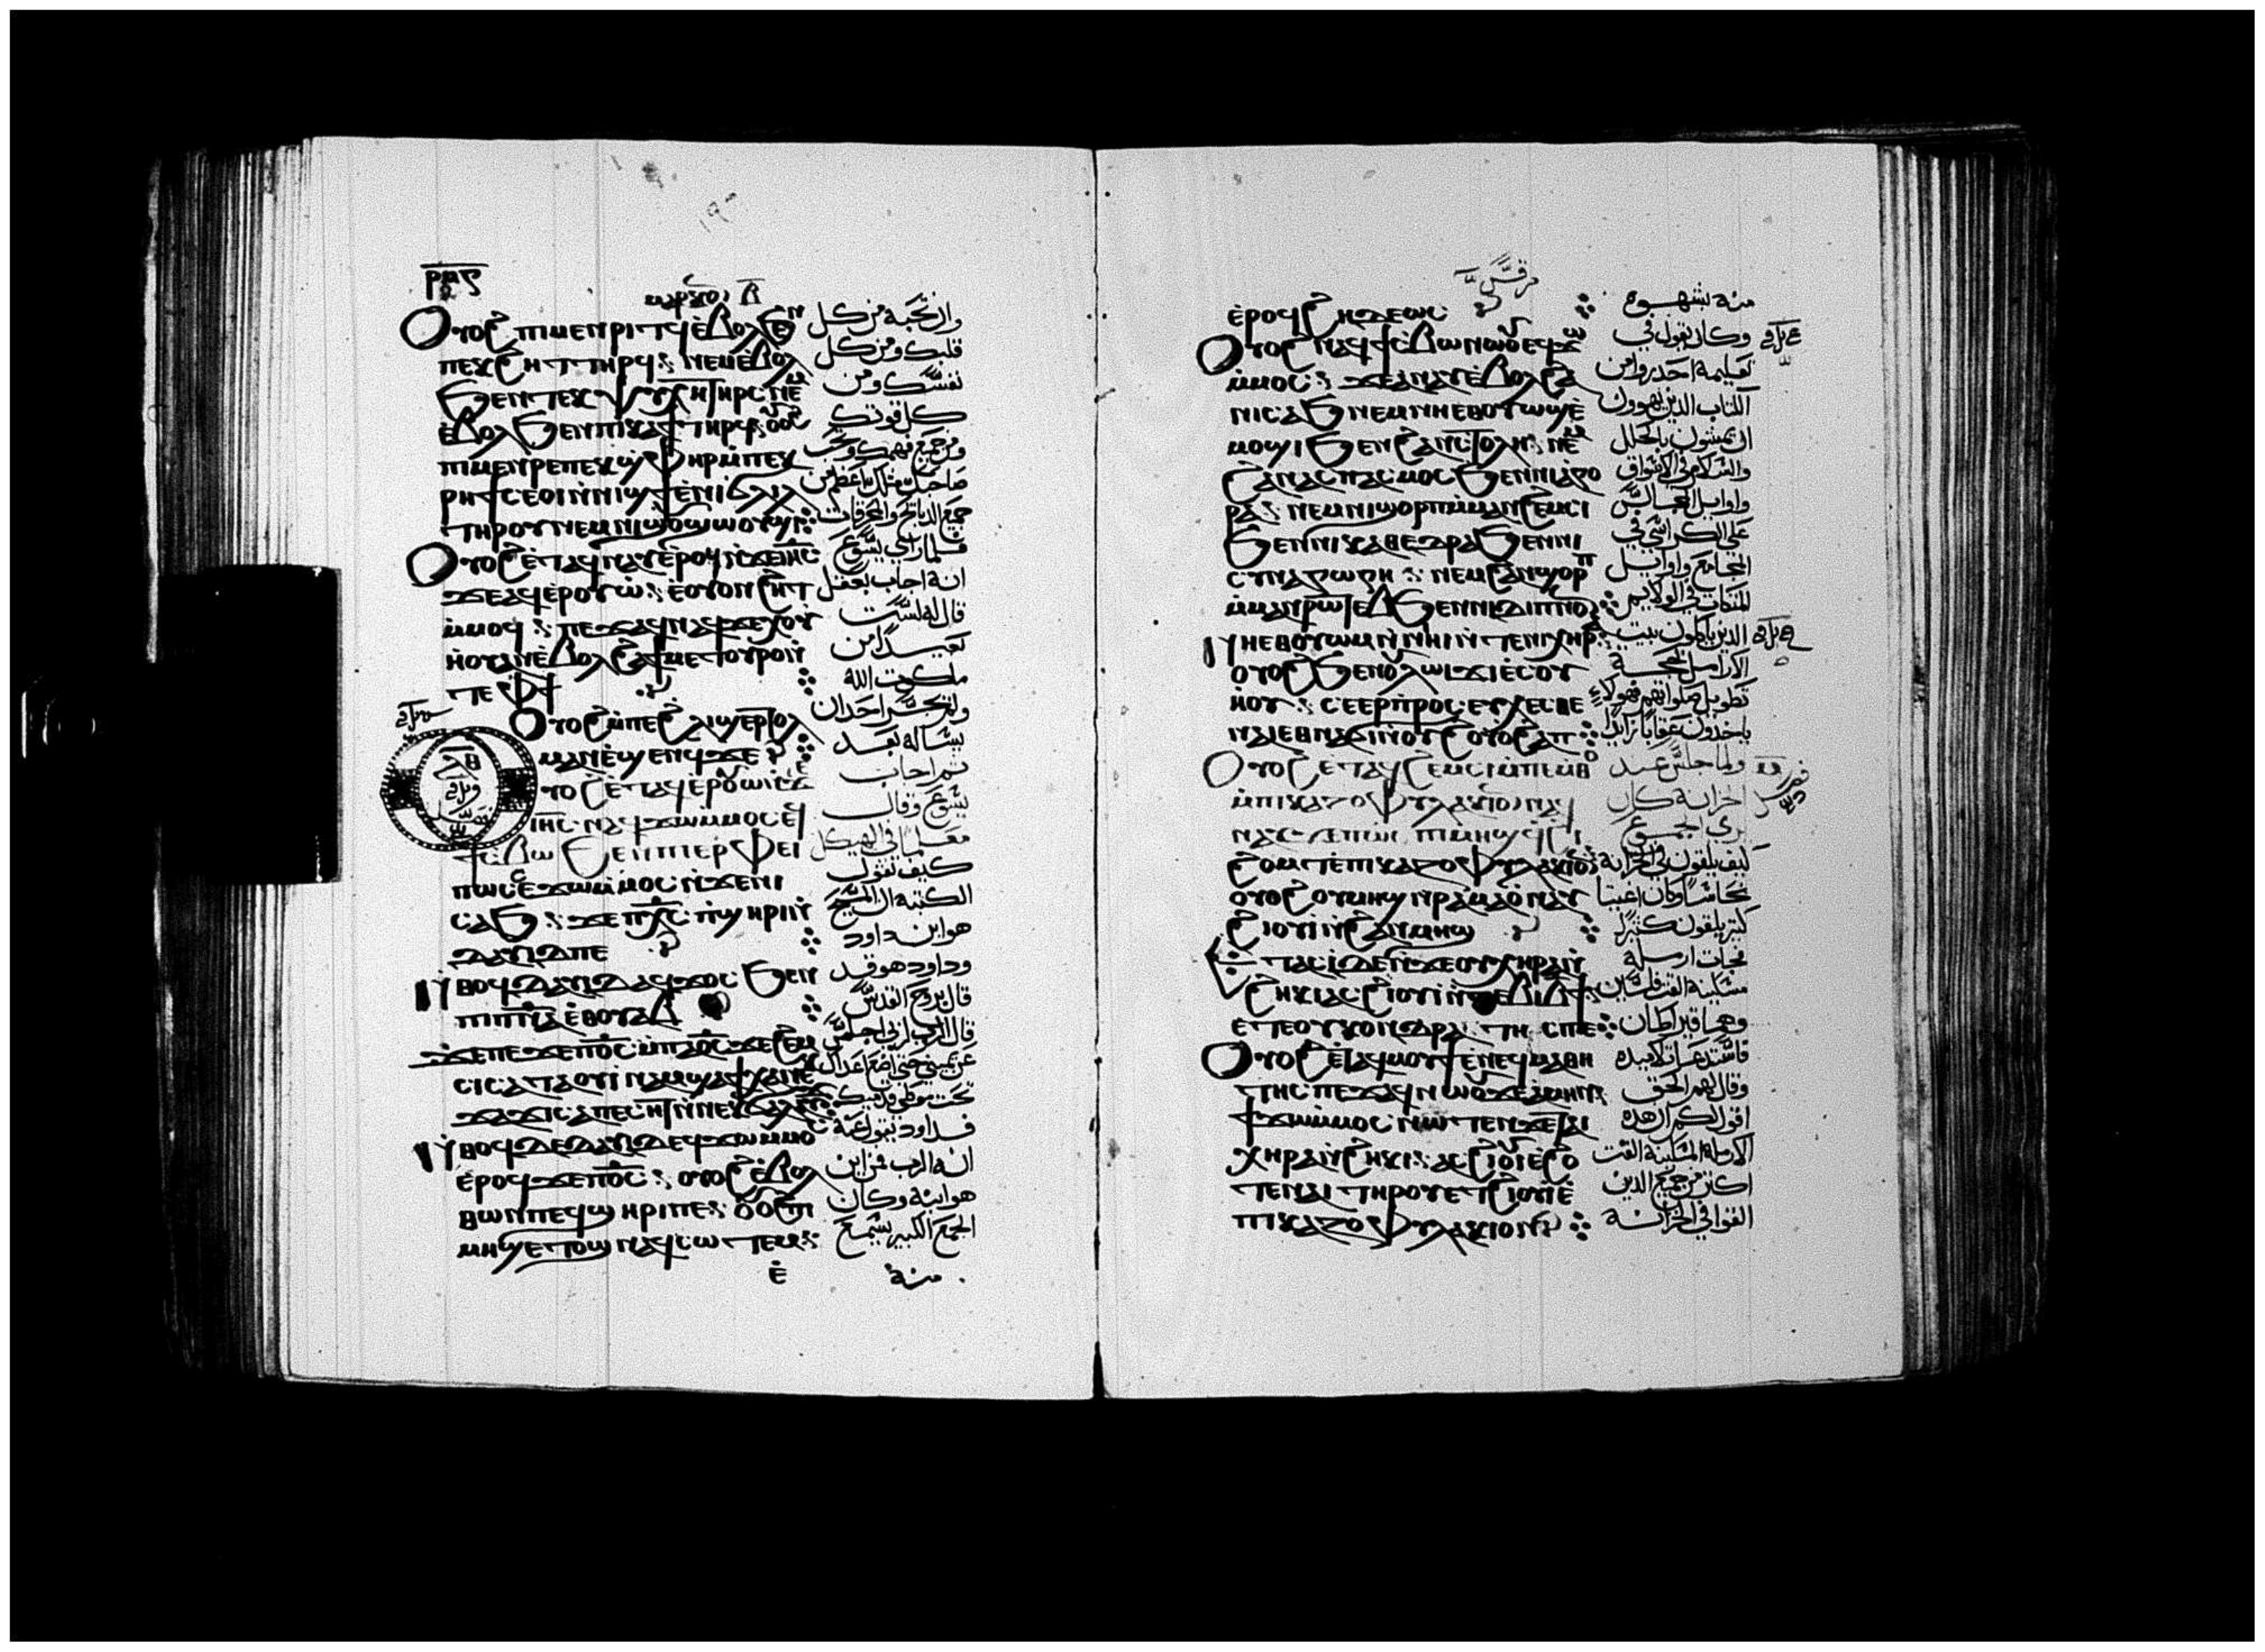 ⲣⲙⲋ
ⲟⲩⲟϩ ⲡⲓⲙⲉⲛⲣⲓⲧϥ ⲉⲃⲟⲗϧⲉⲛ
ⲡⲉⲕϩⲏⲧ ⲧⲏⲣϥ ⲛⲉⲙ ⲉⲃⲟⲗ
ϧⲉⲛ ⲧⲉⲕⲯⲩⲭⲏ ⲧⲏⲣⲥ ⲛⲉⲙ
ⲉⲃⲟⲗ ϧⲉⲛ ⲡⲓⲕⲁϯ ⲧⲏⲣϥ ⲟⲩⲟϩ
ⲡⲓⲙⲉⲛⲣⲉ ⲡⲉⲕϣⲫⲏⲣ ⲙⲡⲉⲕ
ⲣⲏϯ ⲥⲉⲟⲓ ⲛⲛⲓϣϯ ⲉⲛⲓϭⲗⲓⲗ
ⲧⲏⲣⲟⲩ ⲛⲉⲙ ⲛⲓϣⲟⲩϣⲱⲟⲩϣⲓ
ⲟⲩⲟϩ ⲉⲧⲁϥⲛⲁⲩ ⲉⲣⲟϥ ⲛϫⲉ ⲓⲏⲥ
ϫⲉ ⲁϥⲉⲣⲟⲩⲱ ⲉⲟⲩⲟⲛ ϩⲏⲧ
ⲙⲙⲟϥ ⲡⲉϫⲁϥ ⲛⲁϥ ϫⲉ ⲭⲟⲩ
ⲏⲟⲩ ⲁⲛ ⲉⲃⲟⲗ ϩⲁ ϯⲙⲉⲧⲟⲩⲣⲟ ⲛ
ⲧⲉ ⲫϯ
ⲟⲩⲟϩ ⲙⲡⲉ ϩⲗⲓ ⲉⲣⲧⲟⲗ
ⲙⲁⲛ ⲉϣⲉⲛϥ ϫⲉ
ⲟⲩⲟϩ ⲉⲧⲁϥⲉⲣⲟⲩⲱ ⲛϫⲉ
ⲓⲏⲥ ⲛⲁϥϫⲱ ⲙⲙⲟⲥ ⲉϥ
ϯⲥⲃⲱ ϧⲉⲛ ⲡⲓⲉⲣⲫⲉⲓ
ⲡⲱⲥ ⲥⲉϫⲱ ⲙⲙⲟⲥ ⲛϫⲉ ⲛⲓ
ⲥⲁϧ ϫⲉ ⲡⲭⲥ ⲡϣⲏⲣⲓ ⲛ
ⲇⲁⲩⲓⲇ ⲡⲉ
ⲛⲑⲟϥ ⲇⲁⲩⲓⲇ ⲁϥϫⲟⲥ ϧⲉⲛ
ⲡⲓⲡⲛⲁ ⲉⲑⲟⲩⲁⲃ
ϫⲉ ⲡⲉϫⲉ ⲡⲟⲥ ⲙⲡⲁⲟⲥ ϫⲉ ϩⲉⲙ
ⲥⲓ ⲥⲁⲧⲁⲟⲩⲓⲛⲁⲙ ϣⲁϯⲭⲁ ⲛⲉⲕ
ϫⲁϫⲓ ⲥⲁⲡⲉⲥⲏⲧ ⲛⲛⲉⲕϭⲁⲗⲁⲩϫ
ⲛⲑⲟϥ ⲇⲉ ⲇⲁⲩⲓⲇ ⲉϥϫⲱ ⲙⲙⲟⲥ
ⲉⲣⲟϥ ϫⲉ ⲡⲟⲥ ⲟⲩⲟϩ ⲉⲃⲟⲗ
ⲑⲱⲛ ⲡⲉϥϣⲏⲣⲓ ⲡⲉ ⲟⲩⲟϩ ⲡⲓ
ⲙⲏϣ ⲉⲧⲟϣ ⲛⲁϥⲥⲱⲧⲉⲙ
ⲉ
وان تحبه من كل
قلبك ومن كل
نفسك ومن
كل قوتك
ومن جميع فهمك وتحب
صاحبك مثلك اعظم من
جميع الدبائح والمحرقات
فلما راي يسوع
انه اجاب بعقل
قال له لست
بعيدا من
ملكوت الله
ولم يجسر احد ان
يساله بعد
ثم اجاب
يسوع وقال
معلما في الهيكل
كيف تقول
الكتبة ان المسيح
هو ابن داود
وداود هو قد
قال بروح القدس
قال الرب لربي اجلس
عن يميني حتي اضع اعداك
تحت موطي قدميك
فداود يقول عنه
انه الرب فمن اين
هو ابنه وكان
الجمع الكبير يسمع
منه
مرقس
ⲉⲣⲟϥ ϩⲏⲇⲉⲱⲥ
ⲟⲩⲟϩ ⲛⲁϥϯⲥⲃⲱ ⲛⲱⲟⲩ ⲉϥϫⲱ
ⲙⲙⲟⲥ ϫⲉ ⲁⲛⲁⲩ ⲉⲃⲟⲗ ϩⲁ
ⲛⲓⲥⲁϧ ⲛⲉⲙ ⲛⲏⲉⲑⲟⲩⲱϣ ⲉ
ⲙⲟϣⲓ ϧⲉⲛ ϩⲁⲛⲥⲧⲟⲗⲏ ⲛⲉⲙ
ϩⲁⲛⲁⲥⲡⲁⲥⲙⲟⲥ ϧⲉⲛ ⲛⲓⲁⲅⲟ
ⲣⲁ ⲛⲉⲙ ⲛⲓϣⲟⲣⲡ ⲙⲙⲁⲛϩⲉⲙⲥⲓ
ϧⲉⲛ ⲛⲓⲕⲁⲑⲉⲇⲣⲁ ϧⲉⲛ ⲛⲓ
ⲥⲩⲛⲁⲅⲱⲅⲏ ⲛⲉⲙ ϩⲁⲛϣⲟⲣⲡ
ⲙⲙⲁⲛⲣⲱⲧⲉⲃ ϧⲉⲛ ⲛⲓⲇⲓⲡⲛⲟⲛ
ⲛⲏⲉⲑⲟⲩⲱⲙ ⲛⲛⲓⲏⲓ ⲛⲧⲉ ⲛⲓⲭⲏⲣⲁ
ⲟⲩⲟϩ ϧⲉⲛ ⲟⲩⲗⲱⲓϫⲓ ⲉⲥⲟⲩ
ⲏⲟⲩ ⲥⲉⲉⲣⲡⲣⲟⲥⲉⲩⲭⲉⲥⲑⲉ
ⲛⲁⲓ ⲉⲑⲛⲁϭⲓ ⲛⲟⲩϩⲟⲩⲟ ϩⲁⲡ
ⲟⲩⲟϩ ⲉⲧⲁϥϩⲉⲙⲥⲓ ⲙⲡⲉⲙⲑⲟ
ⲙⲡⲓⲕⲁⲍⲟⲫⲩⲗⲁⲕⲓⲟⲛ ⲛⲁϥ
ϩⲟⲙⲧ ⲉⲡⲓⲕⲁⲍⲟⲫⲩⲗⲁⲕⲓⲟⲛ
ⲟⲩⲟϩ ⲟⲩⲙⲏϣ ⲛⲣⲁⲙⲁⲟ ⲛⲁⲩ
ϩⲓⲟⲩⲓ ⲛϩⲁⲛⲙⲏϣ
ⲉⲧⲁⲥⲓ ⲇⲉ ⲛϫⲉ ⲟⲩⲭⲏⲣⲁ ⲛ
ϩⲏⲕⲓ ⲁⲥϩⲓⲟⲩⲓ ⲛⲧⲉⲃⲓ ⲃϯ
ⲉⲧⲉ ⲟⲩⲕⲟⲛⲇⲣⲁⲛⲧⲏⲥ ⲡⲉ
ⲟⲩⲟϩ ⲉⲧⲁϥⲙⲟⲩϯ ⲉⲛⲉϥⲙⲁⲑⲏ
ⲧⲏⲥ ⲡⲉϫⲁϥ ⲛⲱⲟⲩ ϫⲉ ⲁⲙⲏⲛ
ϯϫⲱ ⲙⲙⲟⲥ ⲛⲱⲧⲉⲛ ϫⲉ ⲧⲁⲓ
ⲭⲏⲣⲁ ⲛϩⲏⲕⲓ ⲁⲥϩⲓⲟⲩⲓ ⲉϩⲟ
ⲧⲉ ⲛⲁⲓ ⲧⲏⲣⲟⲩ ⲉⲧϩⲓⲟⲩⲓ ⲉ
ⲡⲓⲕⲁⲍⲟⲫⲩⲗⲁⲕⲓⲟⲛ
منه بشهوه
وكان يقول في
تعليمه احدروا من
الكتاب الدين يهوون
ان يمشون بالحلل
والسلام في الاسواق
واوايل المجالس
علي الكراسي في
المجامع واوايل
المتكات في الولايم
الدين ياكلون بيت
الارامل بحجة
تطويل صلواتهم فهولاء
ياخدون عقابا زايدا
ولما جلس عند
الخزانة كان
يري الجموع
كيف يلقون في الخزانة
نحاسا وكان اغنيا
كتير يلقون كتيرا
فجات ارملة
مسكينة القت فلسين
وهما قيراطان
فاستدعا تلاميده
وقال لهم الحق
اقول لكم ان هده
الارملة المسكينة القت
اكتر من جميع الدين
القوا في الخزانة